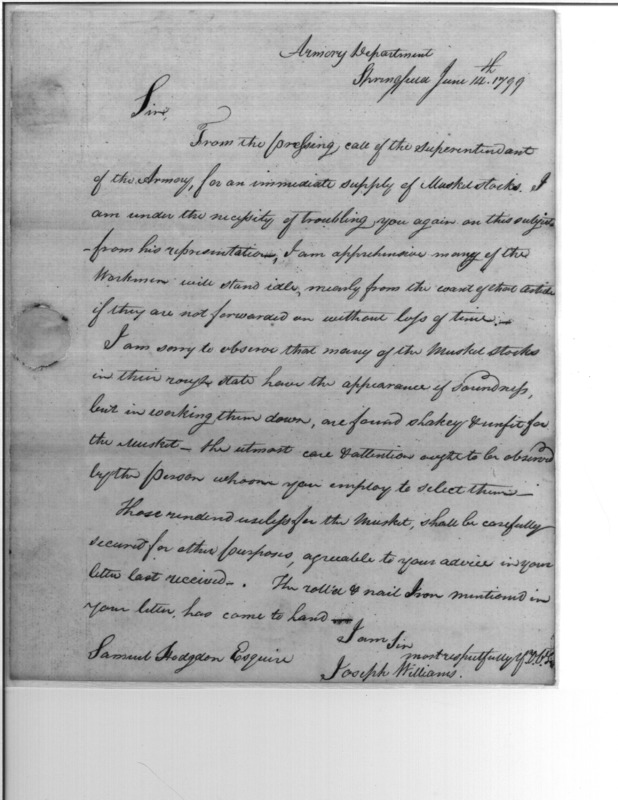 Armory Department
Springfield June 14th. 1799
Sir,
From the pressing call of the Superentendant
of the Armory, for an immediate supply of Musket stocks. I
am under the necessity of troubling you again on this subject
from his representation, I am apprehensive many of the
Workmen will stand idle, mearly from the want of that Article
if they are not forwarded on without loss of time.—
I am sorry to observe that many of the Musket stocks
in their rough state have the appearance of Soundness,
but in working them down, are found shakey & unfit for
the Musket — the utmost care & attention ought to be observed
by the person whoom you employ to select them —
Those rendend useless for the Musket, shall be carefully
secured for other purposes, agreable to your advice in your
letter last received —. The roll'd & nail Iron mentioned in
your letter, has come to hand —
I am Sir
most respectfully Yr. O. St
Samuel Hodgdon Esquire
Joseph Williams.